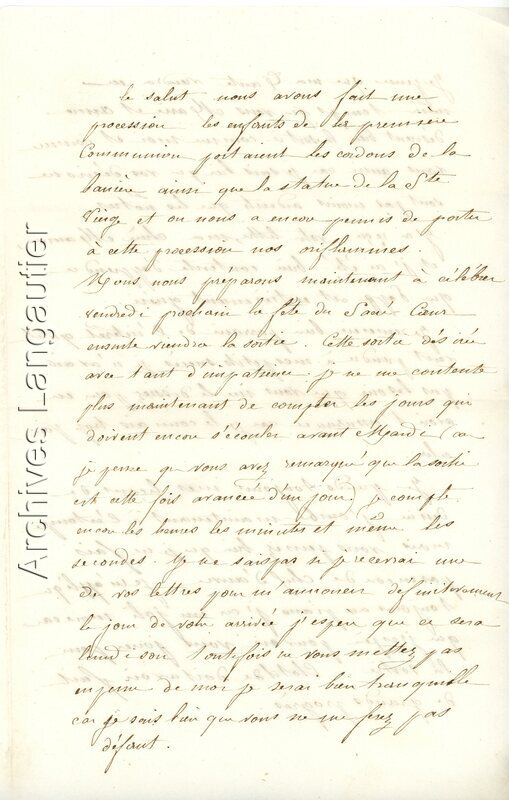 le salut nous avons fait une
procession les enfants de la première
Communion portaient les cordons de la
banière ainsi que la statue de la Ste
Vierge et on nous a encore permis de porter
à cette procession nos oriflammes.
Nous nous préparons maintenant à célébrer
vendredi prochain la fête du Sacré Cœur
ensuite viendra la sortie. Cette sortie désirée
avec tant d'impatience je ne me contente
plus maintenant de compter les jours qui
doivent encore s'écouler avant Mardi (car
je pense que vous avez remarqué que la sortie
est cette fois avancée d'un jour) je compte
encore les heures les minutes et même les
secondes. Je ne sais pas si je recevrai une
de vos lettres pour m'annoncer définitivement
le jour de votre arrivée j'espère que ce sera
lundi soir toutefois ne vous mettez pas
en peine de moi je serai bien tranquille
car je sais bien que vous ne me ferez pas
défaut.
Archives Langautier